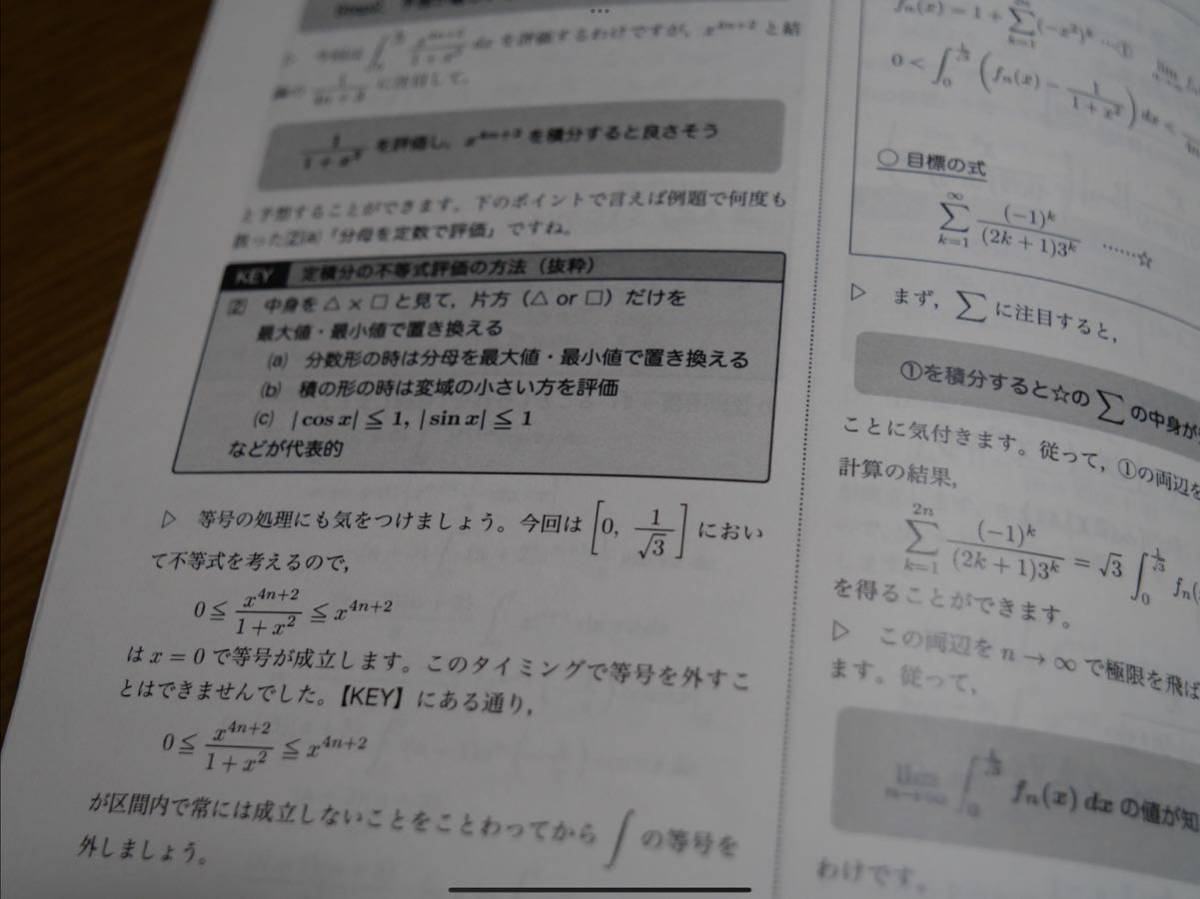 ▷ 今回は ∫ x^{4n+2}/(1+x²) dx を評価するわけですが, x^{4n+2} と結
に注目して,
1/(1+x²) を評価し, x^{4n+2} を積分すると良さそう
と予想することができます。下のポイントで言えば例題で何度も
扱った②(a)「分母を定数で評価」ですね。
KEY 定積分の不等式評価の方法（抜粋）
② 中身を △ × □ と見て, 片方（△ or □）だけを
最大値・最小値で置き換える
(a) 分数形の時は分母を最大値・最小値で置き換える
(b) 積の形の時は変域の小さい方を評価
(c) |cos x| ≦ 1, |sin x| ≦ 1
などが代表的
▷ 等号の処理にも気をつけましょう。今回は [0, 1/√3] におい
て不等式を考えるので,
0 ≦ x^{4n+2}/(1+x²) ≦ x^{4n+2}
は x = 0 で等号が成立します。このタイミングで等号を外すこ
とはできませんでした。【KEY】にある通り,
0 ≦ x^{4n+2}/(1+x²) ≦ x^{4n+2}
が区間内で常には成立しないことをことわってから ∫ の等号を
外しましょう。
f_n(x) = 1 + Σ_{k=1} (-x²)^k …①
0 < ∫_0^{1/√3} ( f_n(x) - 1/(1+x²) ) dx <
○ 目標の式
Σ_{k=1}^{∞} (-1)^k/((2k+1)3^k) ……☆
▷ まず, Σ に注目すると,
①を積分すると☆の Σ の中身が
ことに気付きます。従って, ①の両辺を
計算の結果,
Σ_{k=1}^{2n} (-1)^k/((2k+1)3^k) = √3 ∫_0^{1/√3} f_n(
を得ることができます。
▷ この両辺を n → ∞ で極限を飛ば
ます。従って,
lim_{n→∞} ∫_0^{1/√3} f_n(x) dx の値が知
わけです。